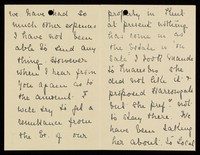 we have had so
much other expenses
I have not been
able to send any
thing. However
when I hear from
you again as to
the amount I
will try to get a
remittance from
the Gr. of our
property in
at present nothing
has come in as
the Estate is on
Sale. I took
to Mumbles she
did not like it &
proposed Harrowgate
but she prefd not
to stay there. We
have been talking
her about is Local